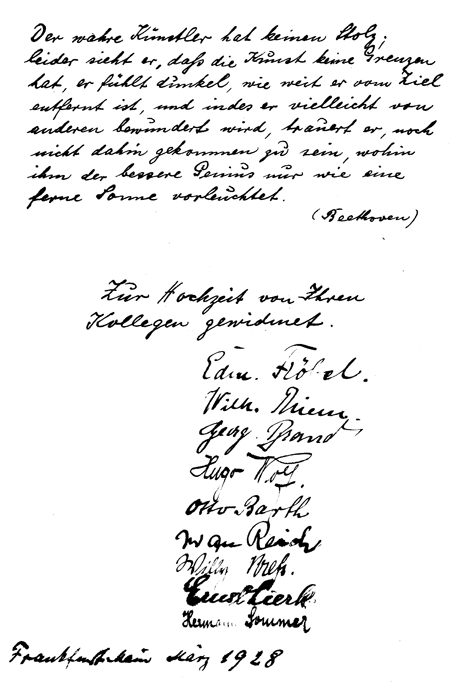 Der wahre Künstler hat keinen Stolz;
leider sieht er, dass die Kunst keine Grenzen
hat, er fühlt dunkel, wie weit er vom Ziel
entfernt ist, und indes er vielleicht von
anderen bewundert wird, trauert er, noch
nicht dahin gekommen zu sein, wohin
ihm der bessere Genius nur wie eine
ferne Sonne vorleuchtet.
(Beethoven)
Zur Hochzeit von Ihren
Kollegen gewidmet.
Edm. Fröbel.
Wilh.
Georg Brand
Hugo Wolf.
Otto Barth
Reich
Willy
Ernst Lierk
Hermann Sommer
Frankfurt-Main März 1928